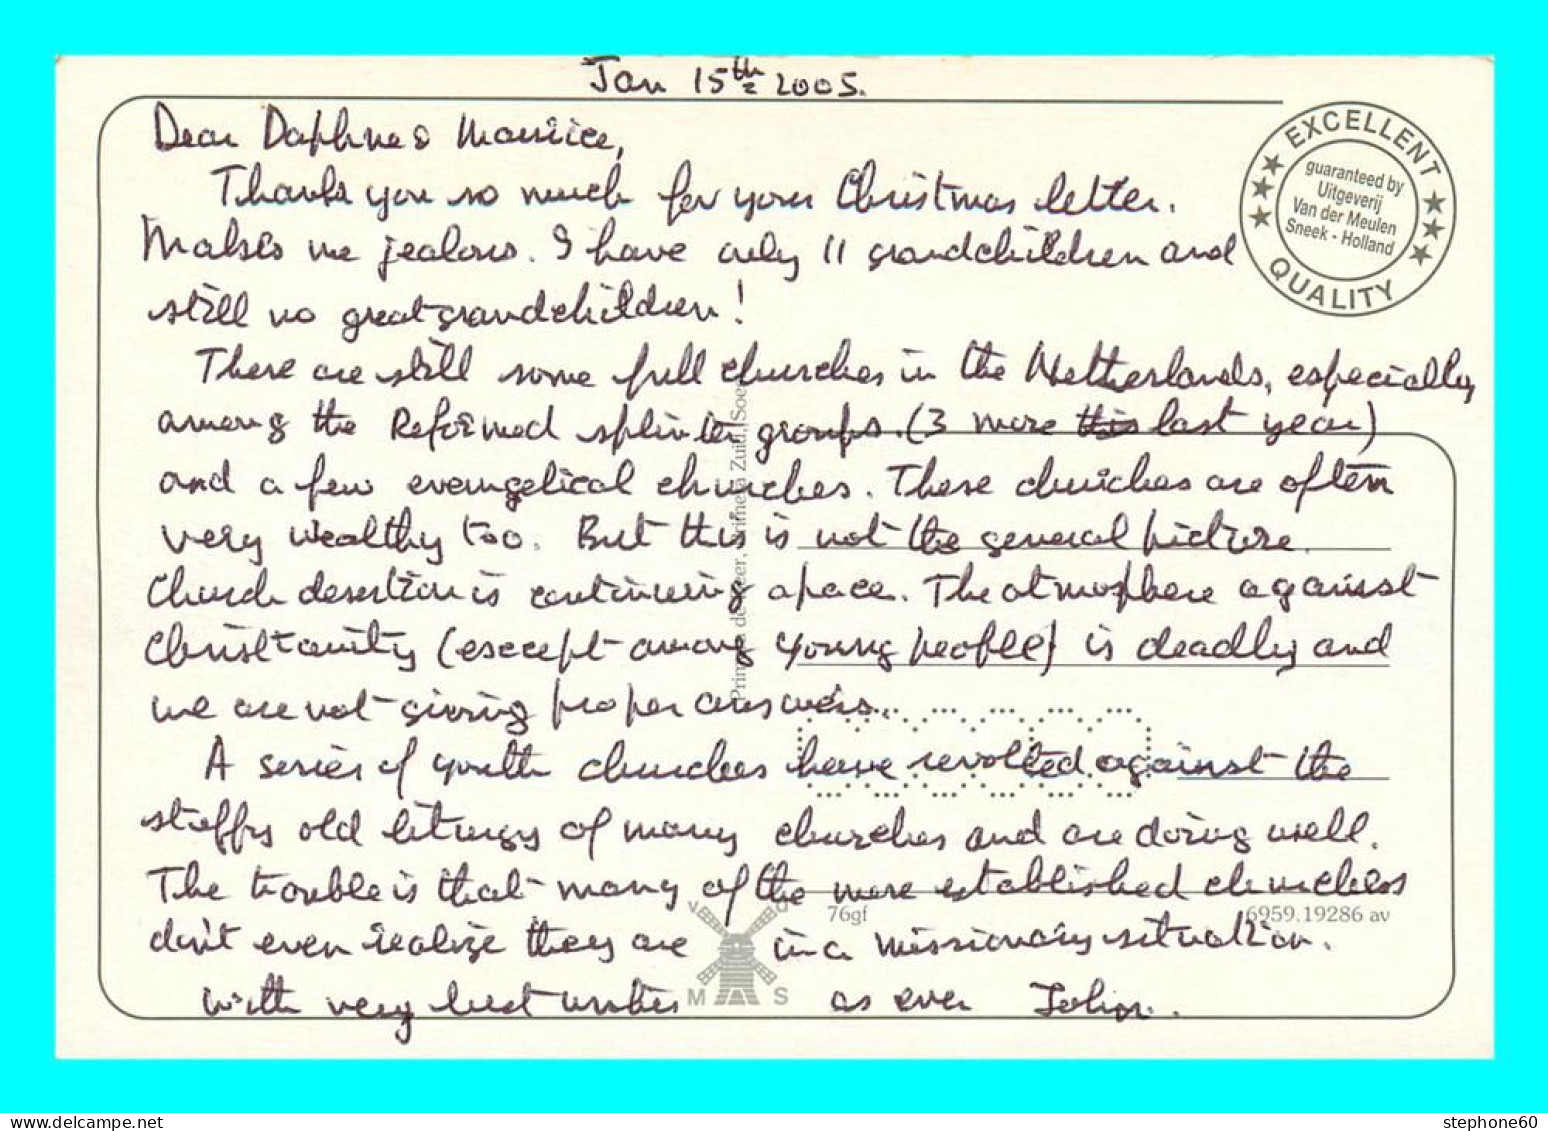 Jan 15th 2005.
Dear Daphne & Maurice,
Thank you so much for your Christmas letter.
Makes me jealous. I have only 11 grandchildren and
still no great grandchildren!
There are still some full churches in the Netherlands, especially
among the Reformed splinter groups. (3 more this last year)
and a few evengelical churches. These churches are often
very wealthy too. But this is not the general picture.
Church desertion is continuing apace. The atmosphere against
Christianity (except among young people) is deadly and
we are not giving proper answers.
A series of youth churches have revolted against the
stuffy old liturgy of many churches and are doing well.
The trouble is that many of the more established churches
don't even realize they are in a missionary situation.
With very best wishes as ever John.
EXCELLENT
guaranteed by
Uitgeverij
Van der Meulen
Sneek - Holland
QUALITY
76gf
6959.19286 av
M S
stephone60